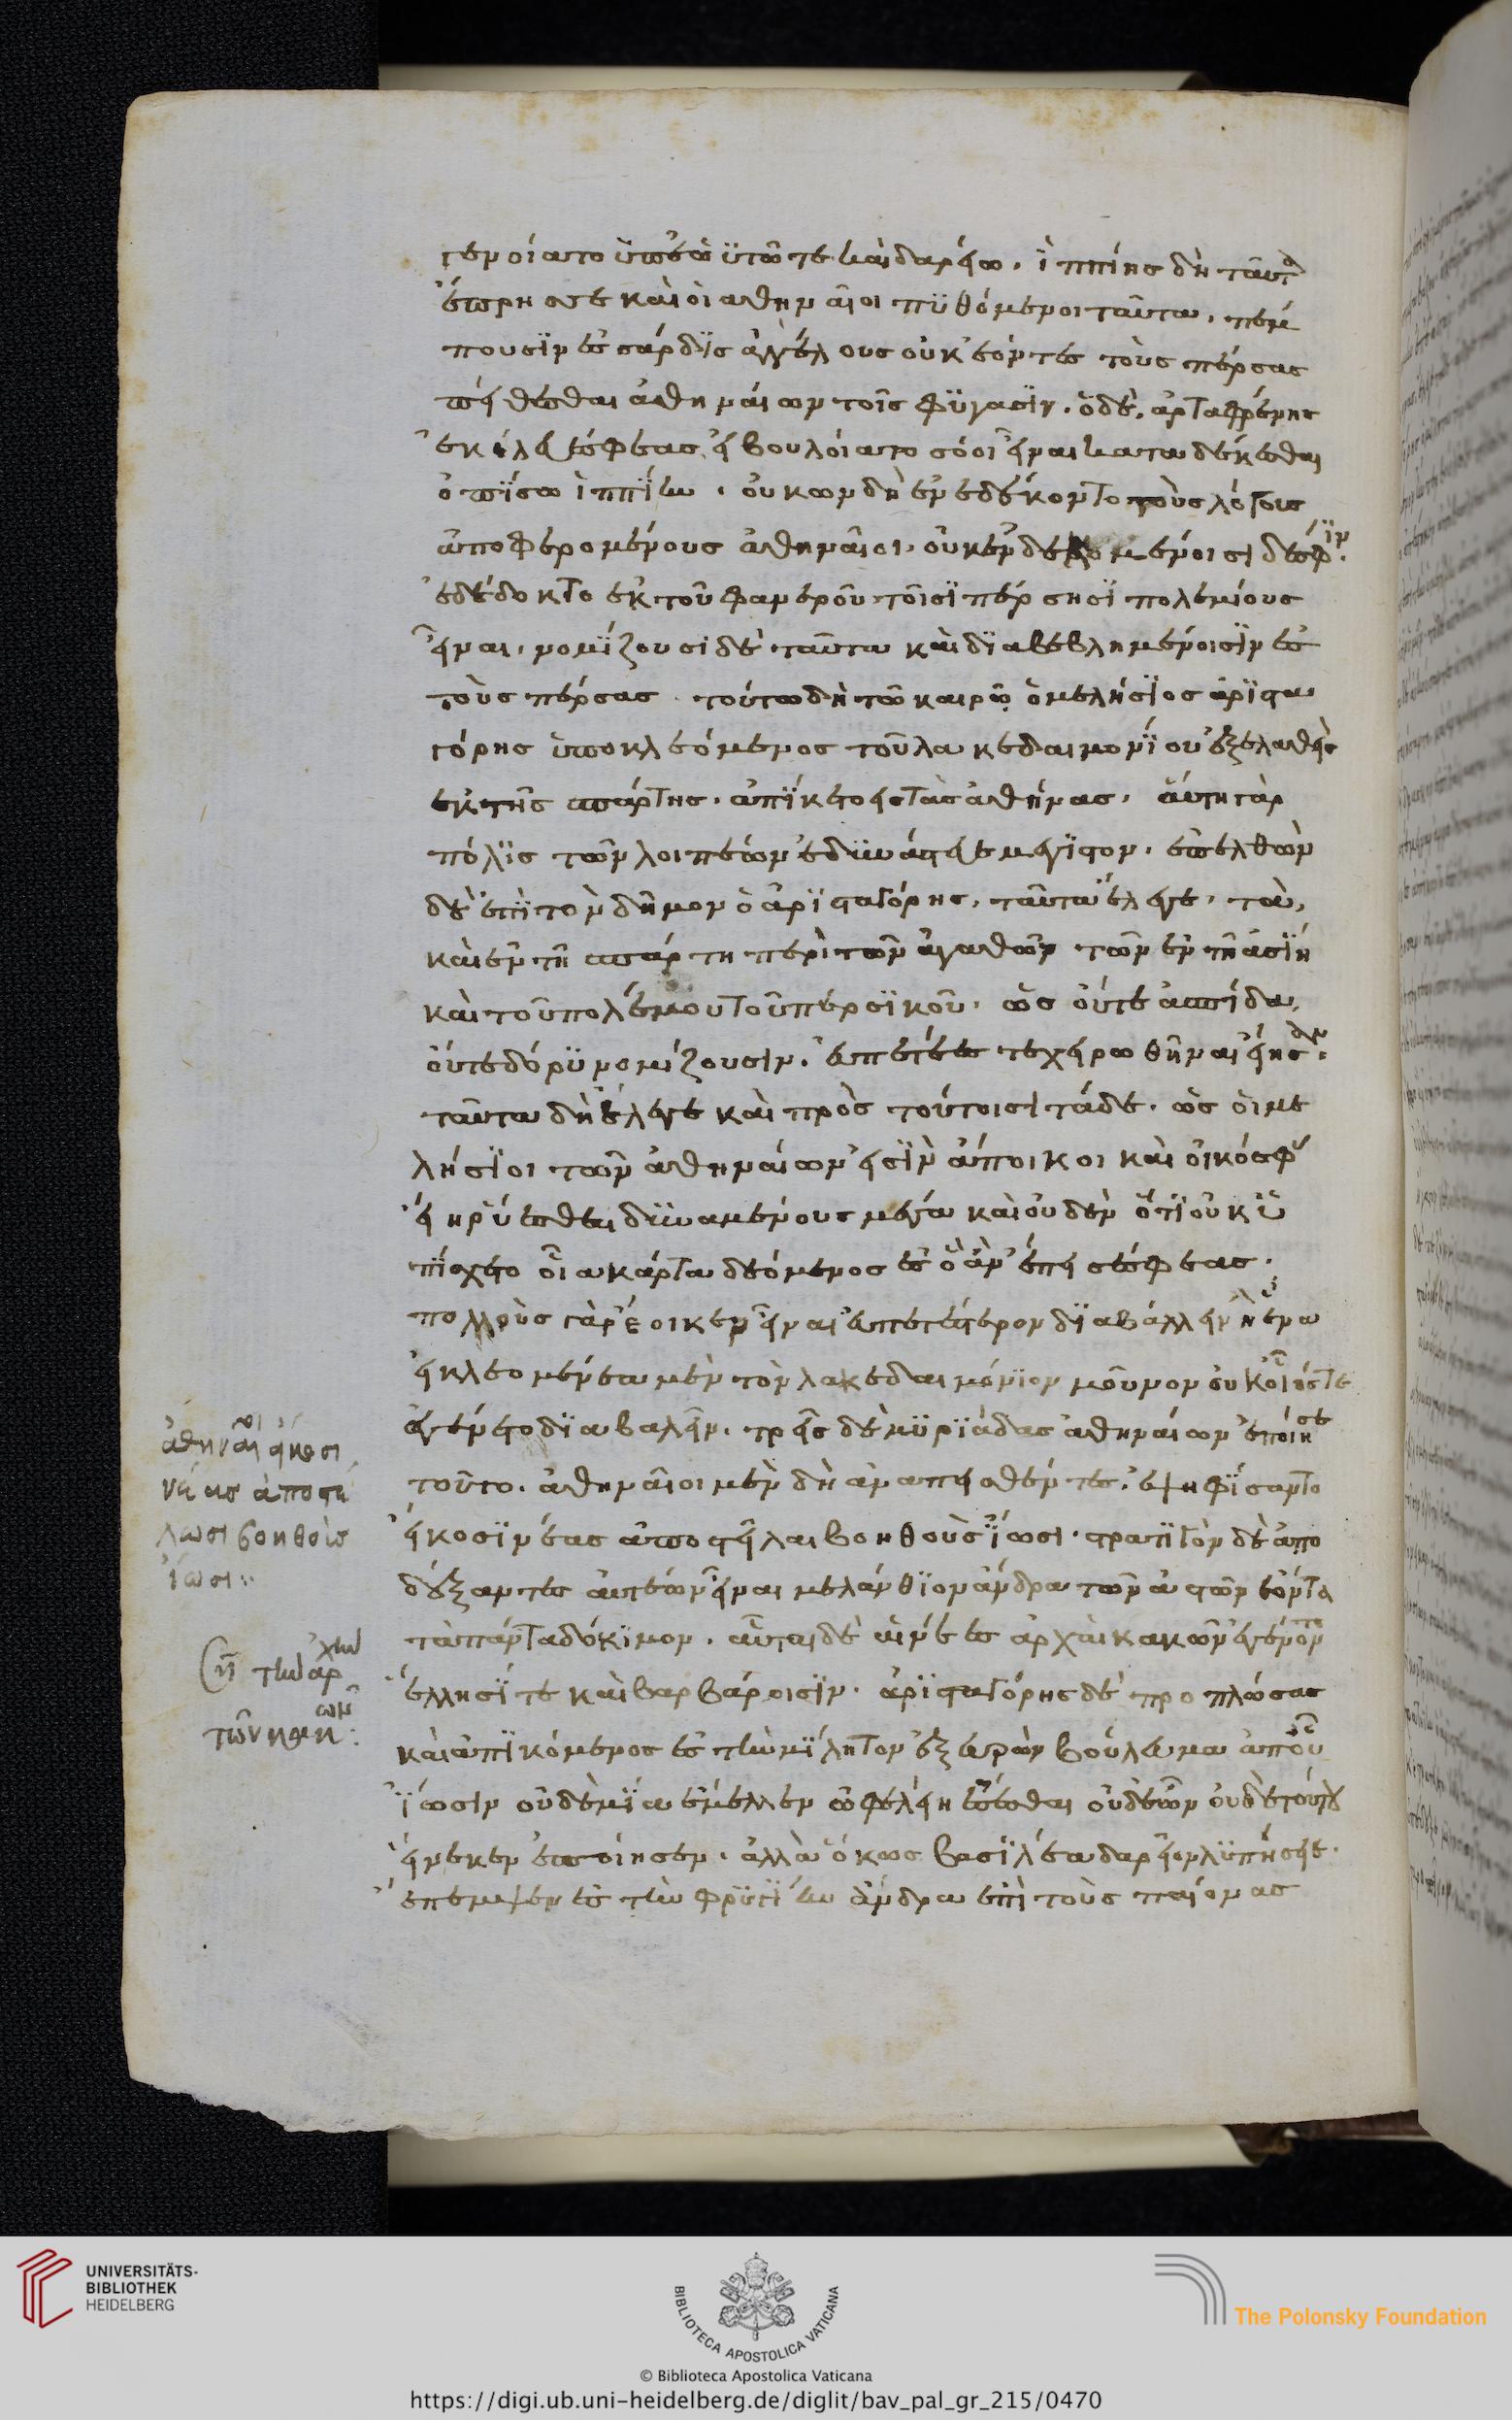 γενοίατο ὑπ' ἑωϋτῶ τε καὶ δαρείω. ἱππίης δὴ ταῦτα
ἔπρησσε καὶ οἱ ἀθηναῖοι πυθόμενοι ταῦτα, πέμ
πουσιν ἐς σάρδϊς ἀγγέλους οὐκ ἐόντες τοὺς πέρσας
πείθεσθαι ἀθηναίων τοῖς φϋγασϊν. ὁ δὲ, ἀρταφρένης
ἐκέλευέ σφεας εἰ βουλοίατο σόοι εἶναι κατα δέκεσθαι
ὀπίσω ἱππίην. οὐκων δὴ ἐνεδέκοντο τοὺς λόγους
ἀποφερομένους ἀθηναῖοι. οὐκ ἐνδεκομένοισι δέ σφιν.
ἐδέδοκτο ἐκ τοῦ φανεροῦ τοῖσι πέρσησϊ πολεμίους
εἶναι. νομίζουσι δὲ ταῦτα καὶ δϊαβεβλημένοισϊν ἐς
τοὺς πέρσας. τούτω δὴ τῶ καιρῶ ὁ μελήσϊος ἀρϊστα
γόρης ὑπο κλεομένος τοῦ λακεδαιμονίου ἐξελαθεὶς
ἐκ τῆς σπάρτης. ἀπίκετο ἐς τὰς ἀθήνας. αὕτη γὰρ
πόλϊς τῶν λοιπέων ἐδϋνάστευε μέγϊστον. ἐπελθὼν
δὲ ἐπὶ τὸν δῆμον ὁ ἀρϊσταγόρης, ταῦτα ἔλεγε. τὰ,
καὶ ἐν τῆ σπάρτη περὶ τῶν ἀγαθῶν τῶν ἐν τῆ ἀσίη
καὶ τοῦ πολέμου τοῦ περσϊκοῦ. ὡς οὔτε ἀσπίδα,
οὔτε δόρυ νομίζουσιν. εὐπετέες τε χειρωθῆναι εἴησαν.
ταῦτα δὴ ἔλεγε καὶ πρὸς τούτοισι τάδε. ὡς οἱ με
λήσϊοι τῶν ἀθηναίων εἰσϊν ἄποικοι καὶ οἰκός σφέ
ει ῥύεσθαι δϋναμένους μέγα καὶ οὐδὲν ὅτι οὐκ ὑ
πίσχετο οἷα κάρτα δεόμενος ἐς ὃ ἀνέπεισέ σφεας.
πολλοὺς γὰρ ἔοικεν εἶναι εὐπετέστερον δϊαβάλλειν ἢ ἕνα
εἰ κλεομένεα μὲν τὸν λακεδαιμόνϊον μοῦνον οὐκ οἷός τε
ἐγένετο δϊαβαλεῖν. τρεῖς δὲ μϋρϊάδας ἀθηναίων ἐποίησε
τοῦτο. ἀθηναῖοι μὲν δὴ ἀναπεισθέντες, ἐψηφίσαντο
εἴκοσϊ νέας ἀποστεῖλαι βοηθοὺς ἴωσι. στρατηγὸν δὲ ἀπο
δέξαντες αὐτέων εἶναι μελάνθϊον ἄνδρα τῶν ἀστῶν ἐόντα
τὰ πάντα δόκϊμον. αὗται δὲ αἱ νέες ἀρχαὶ κακῶν ἐγένοντο
ἕλλησί τε καὶ βαρβάροισϊν. ἀρϊσταγόρης δὲ προπλώσας
καὶ ἀπϊκόμενος ἐς τὴν μίλητον ἐξευρὼν βούλευμα ἀπ' οὗ
ἴωσϊν οὐδεμία ἔμελλεν ὠφελείη ἔσεσθαι οὐδ' ὦν οὐδὲ τούτου
εἵνεκεν ἐποίησεν. ἀλλὰ ὅκως βασιλέα δαρεῖον λϋπήσειε.
ἔπεμψεν ἐς τὴν φρϋγίην ἄνδρα ἐπὶ τοὺς παίονας
ἀθηναῖοι εἴκοσι
νέας ἀποστέ
λωσι βοηθοὺς
ἴωσι:
τὴν ἀρχὴν
τῶν κακῶν:
UNIVERSITÄTS-
BIBLIOTHEK
HEIDELBERG
BIBLIOTECA APOSTOLICA VATICANA
The Polonsky Foundation
© Biblioteca Apostolica Vaticana
https://digi.ub.uni-heidelberg.de/diglit/bav_pal_gr_215/0470